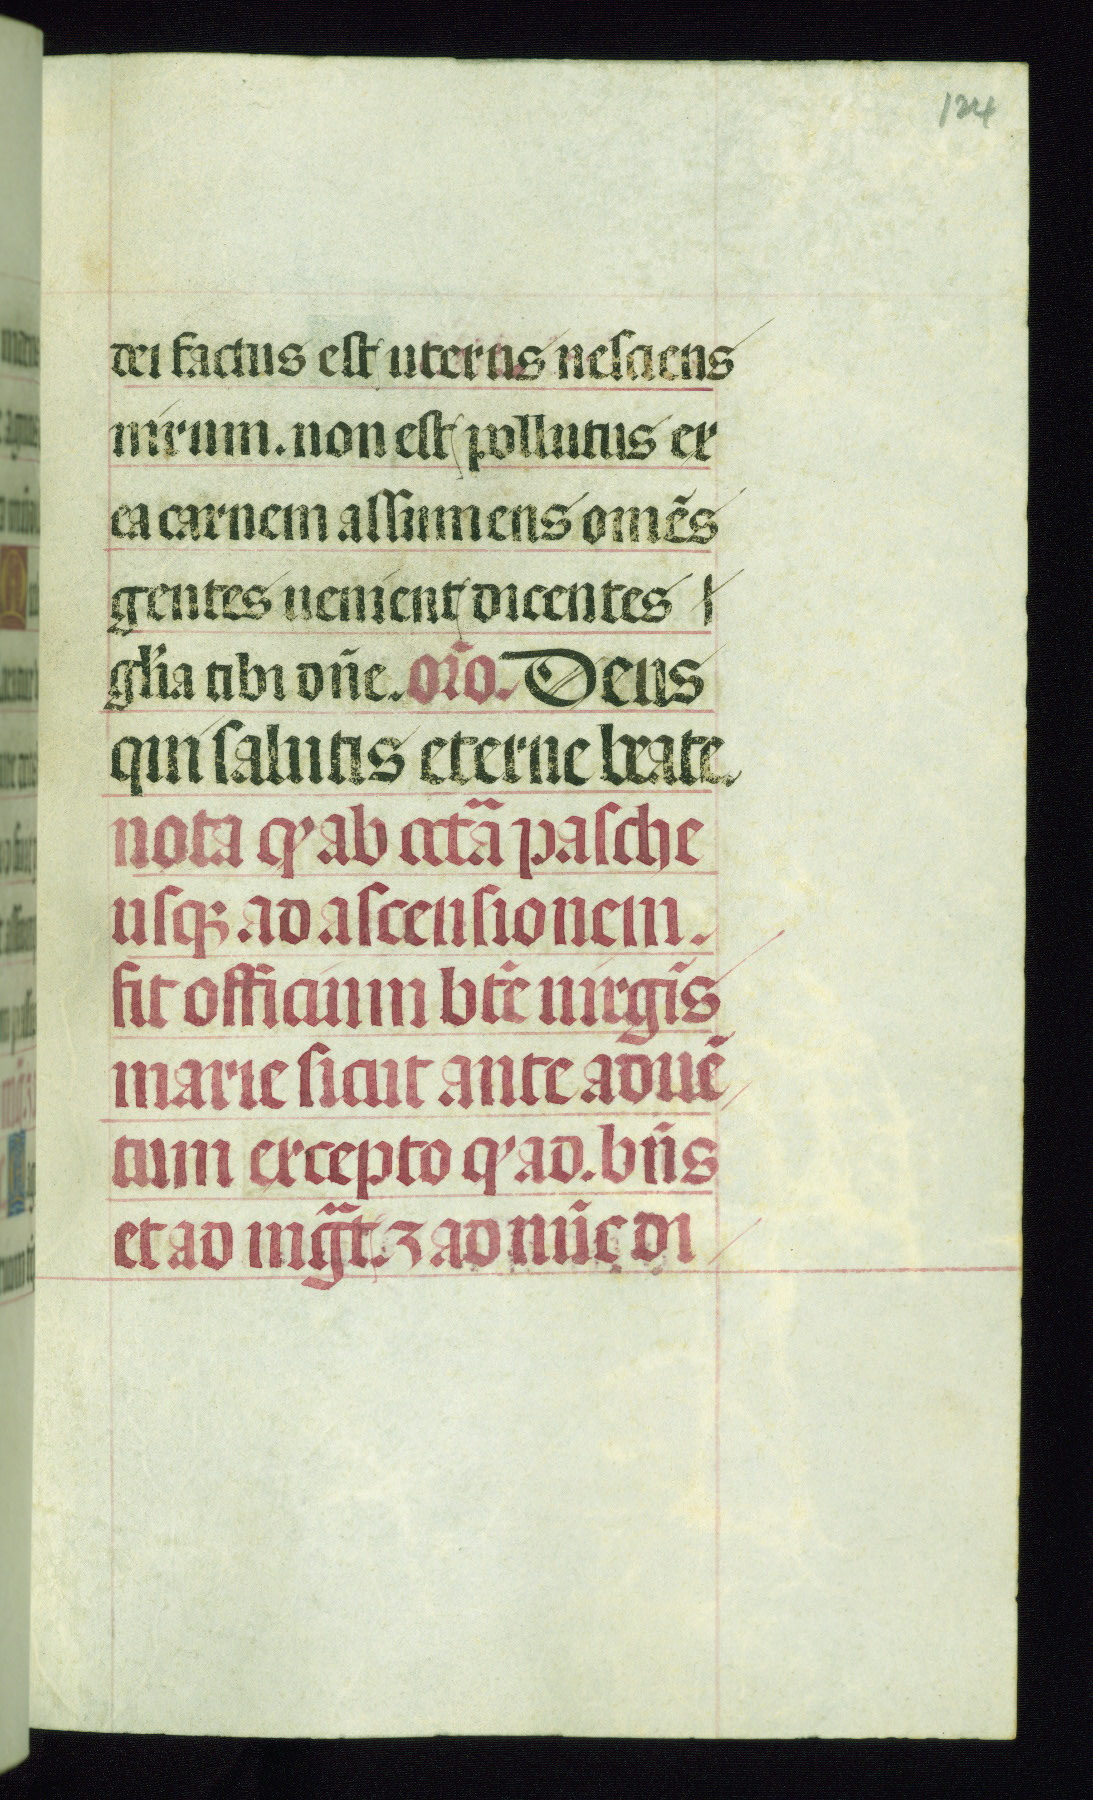 124
dei factus est uterus nesciens
uirum. non est pollutus ex
ea carnem assumens omēs
gentes uenient dicentes
gl̄ia tibi dn̄e. or̄o. Deus
qui salutis eterne beate.
nota qʼ ab octā pasche
usqꝫ ad ascensionem.
fit officium btē uirgīs
marie sicut ante aduē
tum excepto qʼ ad. bn̄s
et ad mḡt. ⁊ ad nūc di